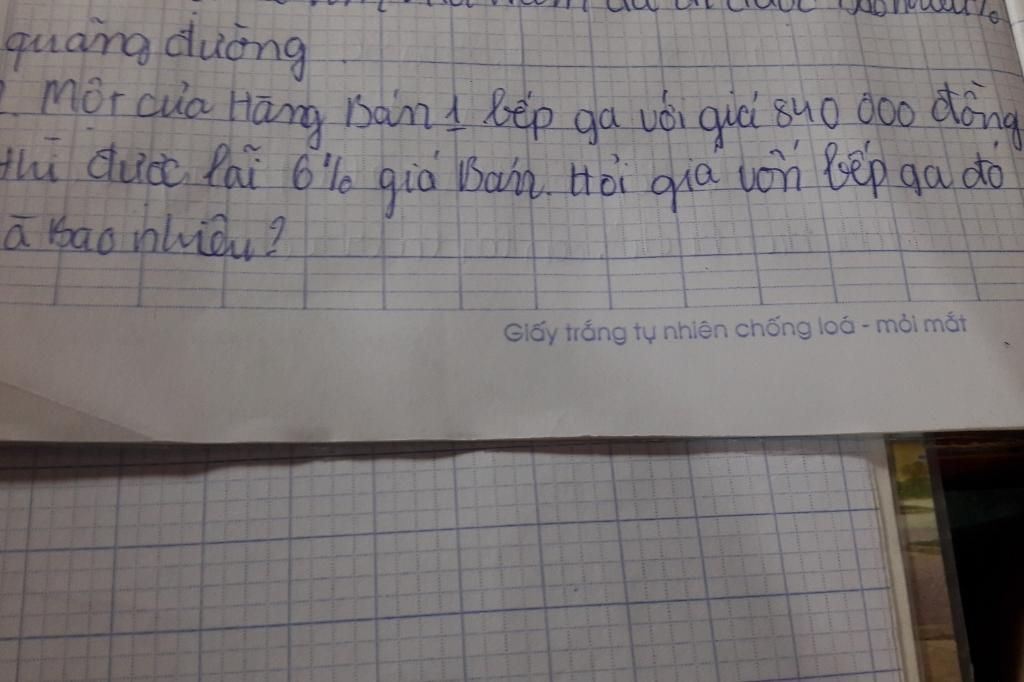 quãng đường
Một cửa Hàng Bán 1 bếp ga với giá 840 000 đồng
thì được lãi 6% giá Bán. Hỏi giá vốn bếp ga đó
à Bao nhiêu?
Giấy trắng tự nhiên chống loá - mỏi mắt